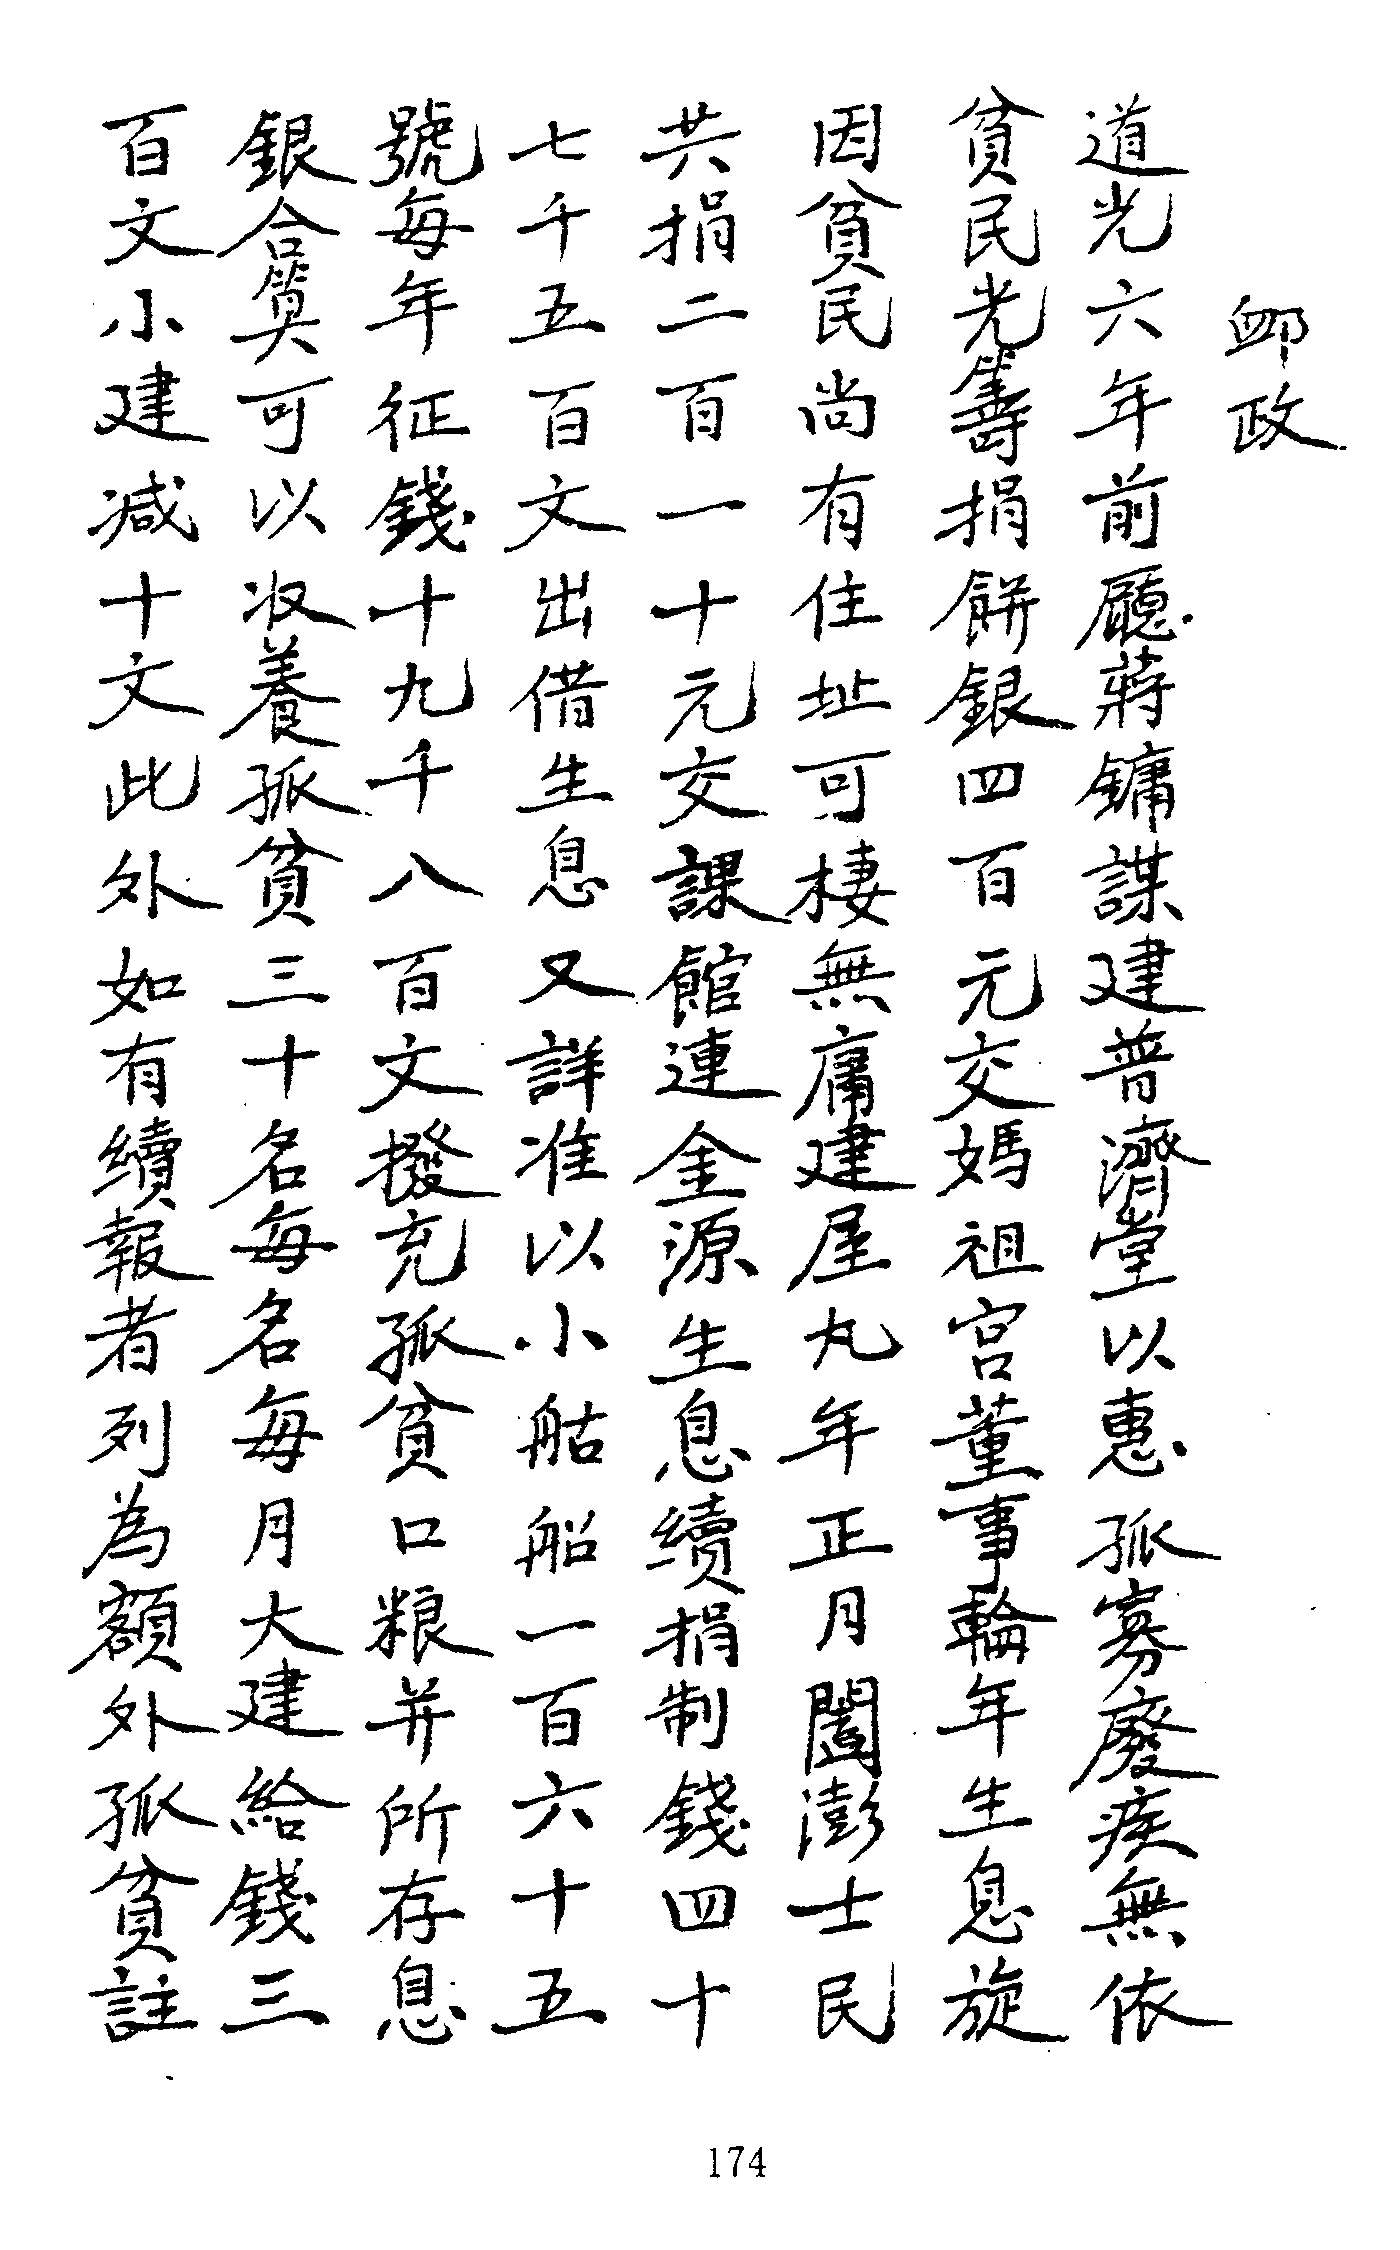 卹政
道光六年前廳蔣鏞謀建普濟堂以惠孤寡廢疾無依
貧民光籌捐餅銀四百元交媽祖宮董事輪年生息旋
因貧民尚有住址可棲無庸建屋九年正月闔澎士民
共捐二百一十元交課館連金源生息續捐制錢四十
七千五百文出借生息又詳准以小舡船一百六十五
號每年征錢十九千八百文撥充孤貧口粮并所存息
銀合算可以收養孤貧三十名每名每月大建給錢三
百文小建减十文此外如有續報者列為額外孤貧註
174